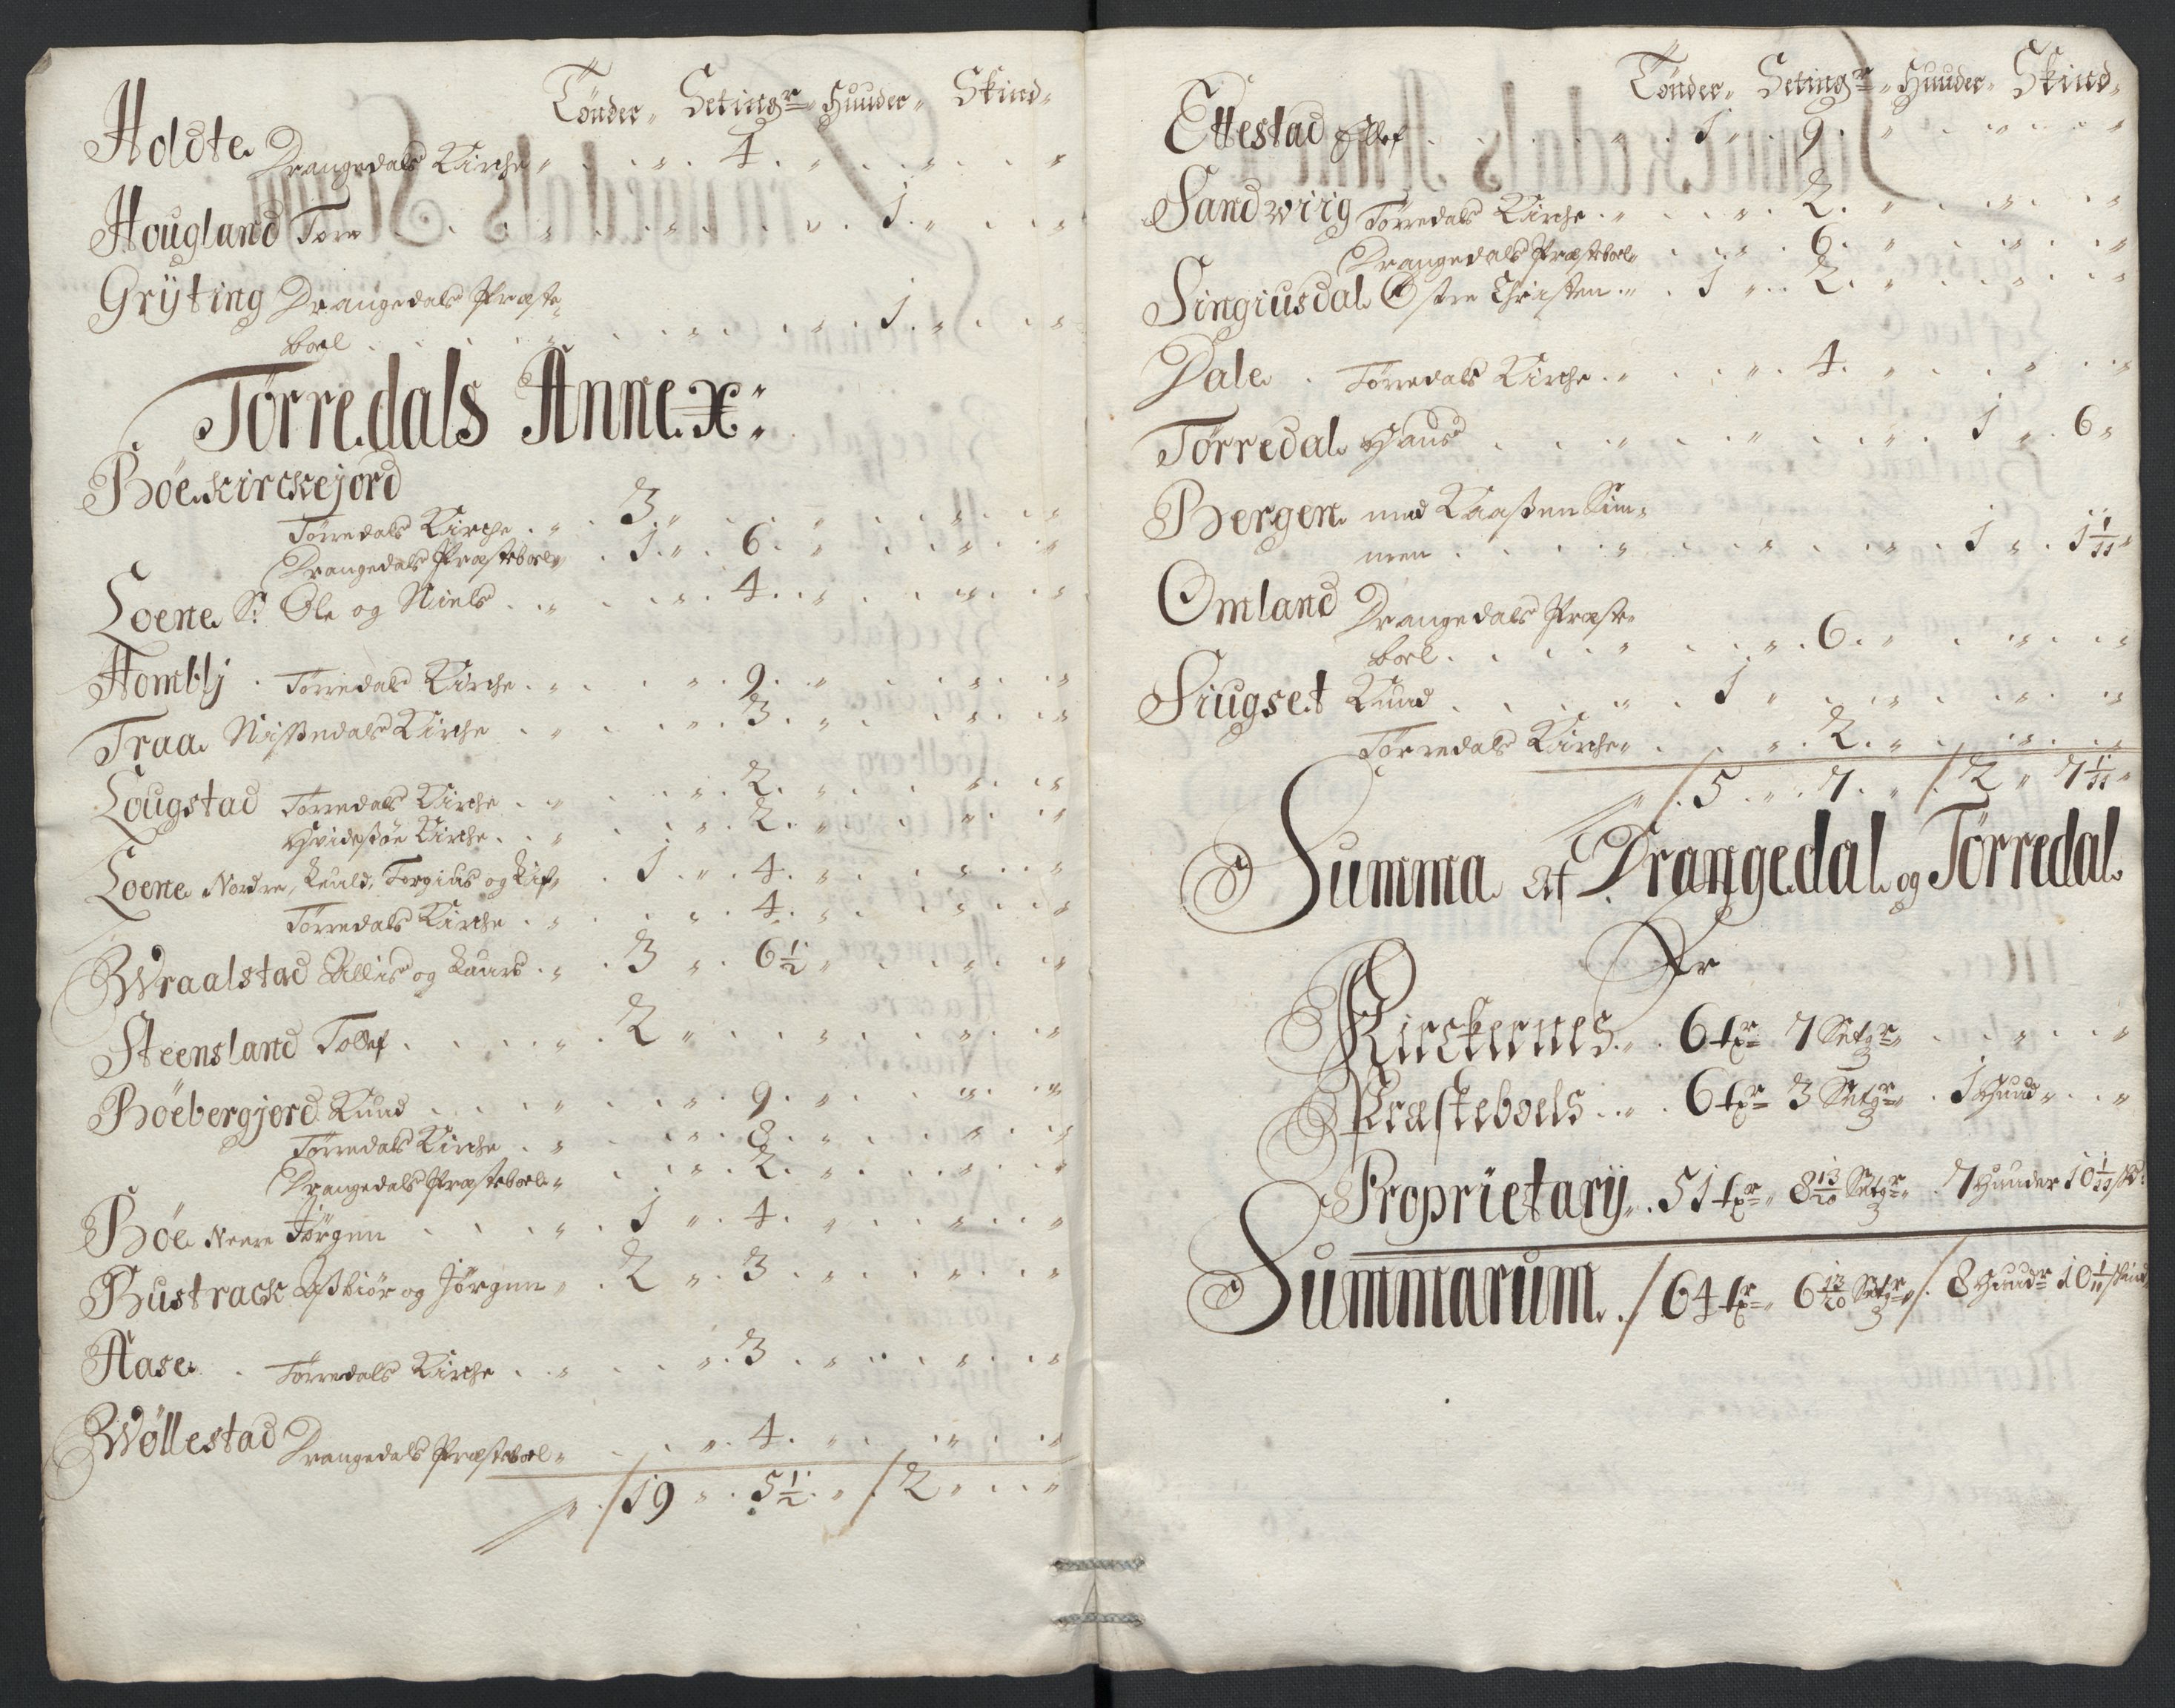 Tönder Setingr Huuder Skind
Holdte Drangedals Kirche 4
Hougland Tore 1
Grÿting Drangedals Præste
boel 1
Tørredals Annex:
Böe kirckejord
Tørredals Kirche 3
Drangedals Præsteboel 1 6
Loene Sr Ole og Niels 4
Homblj Tørredals Kirche 9
Traa Nissedals Kirche 3
Lougstad Tørredals Kirche 2
Hvidesøe Kirche 2
Loene Nordre, Leuld, Torgius og Lif 1 4
Tørredals Kirche 4
Wraalstad Ullis og Laurs 3 6½
Steensland Tollef 2
Böebergjord Knud 9
Tørredals Kirche 8
Drangedals Præsteboel 2
Böe Neere Jørgen 1 4
Bustrack Assbiör og Jörgen 2 3
Aase Tørredals Kirche 3
Wöllestad Drangedals Præsteboel 4
/19 5½ /2
Tönder Setingr Huuder Skind
Ettestad Ellef 1 9
Sandwiig Tørredals Kirche 2
Drangedals Præsteboel 6
Singiusdal Østre Christen 1 2
Dale Tørredals Kirche 4
Tørredal Hans 1 6
Bergen med Kaassen Sim=
men 1 1 1/11
Omland Drangedals Præste
boel 6
Siugset Knud 1
Tørredals Kirche 2
/5 7 /2 7 1/11
Summa af Drangedal og Tørredal
Er
Kirckernes 6 tr 7 Setgr
Præsteboels 6 tr 3 Setgr 1 Huud
Proprietarÿ 51 tr 8 13/20 Setgr 7 Huuder 10 1/11 sk:
Summarum /64 tr 6 13/20 Setgr /8 Huudr 10 1/11 skind